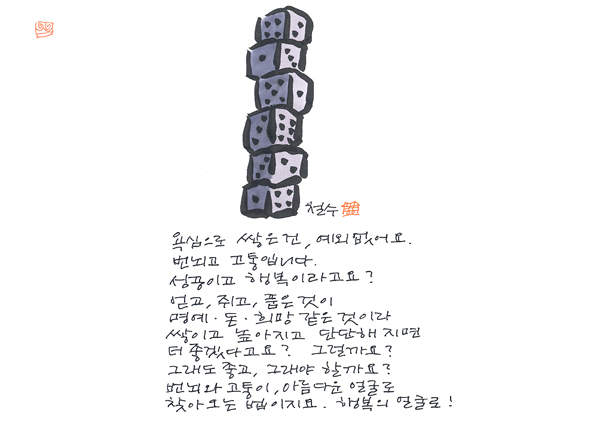 철수
욕심으로 쌓은 건, 예외 없어요.
번뇌고 고통입니다.
성공이고 행복이라고요?
얻고, 쥐고, 품은 것이
명예·돈·희망 같은 것이라
쌓이고 높아지고 단단해 지면
더 좋겠다고요? 그럴까요?
그래도 좋고, 그래야 할까요?
번뇌와 고통이, 아름다운 얼굴로
찾아오는 법이지요. 행복의 얼굴로!